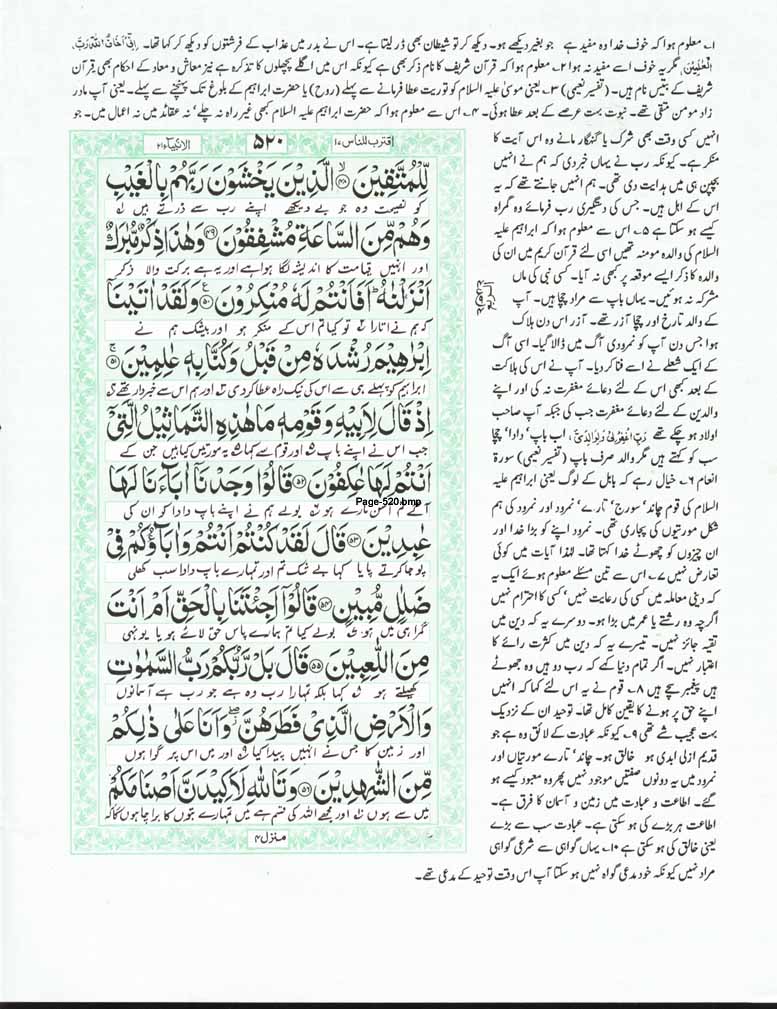 ۱؎ معلوم ہوا کہ خوف خدا وہ مفید ہے جو بغیر دیکھے ہو۔ دیکھ کر تو شیطان بھی ڈر لیتا ہے۔ اس نے بدر میں عذاب کے فرشتوں کو دیکھ کر کہا تھا۔ اِنِّیْۤ اَخَافُ اللّٰہَ رَبَّ
الْعٰلَمِیْنَ، مگر یہ خوف اسے مفید نہ ہوا ۲؎ معلوم ہوا کہ قرآن شریف کا نام ذکر بھی ہے کیونکہ اس میں اگلے پچھلوں کا تذکرہ ہے نیز معاش و معاد کے احکام بھی قرآن
شریف کے بتیس نام ہیں۔ (تفسیر نعیمی) ۳؎ یعنی موسیٰ علیہ السلام کو توریت عطا فرمانے سے پہلے (روح) یا حضرت ابراہیم کے بلوغ تک پہنچنے سے پہلے۔ یعنی آپ مادر
زاد مومن متقی تھے۔ نبوت بہت عرصے کے بعد عطا ہوئی۔ ۴؎ اس سے معلوم ہوا کہ حضرت ابراہیم علیہ السلام کبھی غیر راہ نہ چلے، نہ عقائد میں نہ اعمال میں۔ جو
انہیں کسی وقت بھی شرک یا گنہگار مانے وہ اس آیت کا
منکر ہے۔ کیونکہ رب نے یہاں خبر دی کہ ہم نے انہیں
بچپن ہی میں ہدایت دی تھی۔ ہم انہیں جانتے تھے کہ یہ
اس کے اہل ہیں۔ جس کی دستگیری رب فرمائے وہ گمراہ
کیسے ہو سکتا ہے ۵؎ اس سے معلوم ہوا کہ ابراہیم علیہ
السلام کی والدہ مومنہ تھیں اسی لئے قرآن کریم میں ان کی
والدہ کا ذکر ایسے موقعہ پر کبھی نہ آیا۔ کسی نبی کی ماں
مشرکہ نہ ہوئیں۔ یہاں باپ سے مراد چچا ہیں۔ آپ
کے والد تارخ اور چچا آزر تھے۔ آزر اس دن ہلاک
ہوا جس دن آپ کو نمرودی آگ میں ڈالا گیا۔ اسی آگ
کے ایک شعلے نے اسے فنا کر دیا۔ آپ نے اس کی ہلاکت
کے بعد کبھی اس کے لئے دعائے مغفرت نہ کی اور اپنے
والدین کے لئے دعائے مغفرت جب کی جبکہ آپ صاحب
اولاد ہو چکے تھے رَبِّ اغْفِرْ لِیْ وَلِوَالِدَیَّ، اب باپ، دادا، چچا
سب کو کہتے ہیں مگر والد صرف باپ (تفسیر نعیمی) سورۃ
انعام ۶؎ خیال رہے کہ بابل کے لوگ یعنی ابراہیم علیہ
السلام کی قوم چاند، سورج، تارے، نمرود اور نمرود کی ہم
شکل مورتیوں کی پجاری تھی۔ نمرود اپنے کو بڑا خدا اور
ان چیزوں کو چھوٹے خدا کہتا تھا۔ لہٰذا آیات میں کوئی
تعارض نہیں ۷؎ اس سے تین مسئلے معلوم ہوئے ایک یہ
کہ دینی معاملہ میں کسی کی رعایت نہیں، کسی کا احترام نہیں
اگرچہ وہ رشتے یا عمر میں بڑا ہو۔ دوسرے یہ کہ دین میں
تقیہ جائز نہیں۔ تیسرے یہ کہ دین میں کثرت رائے کا
اعتبار نہیں۔ اگر تمام دنیا کہے کہ رب دو ہیں وہ جھوٹے
ہیں پیغمبر سچے ہیں ۸؎ قوم نے یہ اس لئے کہا کہ انہیں
اپنے حق پر ہونے کا یقین کامل تھا۔ توحید ان کے نزدیک
بہت عجیب شے تھی ۹؎ کیونکہ عبادت کے لائق وہ ہے جو
قدیم ازلی ابدی ہو خالق ہو۔ چاند، تارے مورتیاں اور
نمرود میں یہ دونوں صفتیں موجود نہیں پھر وہ معبود کیسے ہو
گئے۔ اطاعت و عبادت میں زمین و آسمان کا فرق ہے۔
اطاعت ہر بڑے کی ہو سکتی ہے۔ عبادت سب سے بڑے
یعنی خالق کی ہو سکتی ہے ۱۰؎ یہاں گواہی سے شرعی گواہی
مراد نہیں کیونکہ خود مدعی گواہ نہیں ہو سکتا آپ اس وقت توحید کے مدعی تھے۔
اقترب للناس ۱۷ ۵۲۰ الانبیاء ۲۱
لِّلْمُتَّقِیْنَ ﴿۴۸﴾ الَّذِیْنَ یَخْشَوْنَ رَبَّهُمْ بِالْغَیْبِ
کو نصیحت وہ جو بے دیکھے اپنے رب سے ڈرتے ہیں ۱؎
وَهُمْ مِّنَ السَّاعَةِ مُشْفِقُوْنَ ﴿۴۹﴾ وَهٰذَا ذِكْرٌ مُّبٰرَكٌ
اور انہیں قیامت کا اندیشہ لگا ہوا ہے اور یہ ہے برکت والا ذکر
اَنْزَلْنٰهُ ؕ اَفَاَنْتُمْ لَهٗ مُنْكِرُوْنَ ﴿۵۰﴾ وَلَقَدْ اٰتَیْنَاۤ
کہ ہم نے اتارا ۲؎ تو کیا تم اس کے منکر ہو اور بیشک ہم نے
اِبْرٰهِیْمَ رُشْدَهٗ مِنْ قَبْلُ وَكُنَّا بِهٖ عٰلِمِیْنَ ﴿۵۱﴾
ابراہیم کو پہلے ہی سے اس کی نیک راہ عطا کر دی ۳؎ اور ہم اس سے خبردار تھے ۴؎
اِذْ قَالَ لِاَبِیْهِ وَقَوْمِهٖ مَا هٰذِهِ التَّمَاثِیْلُ الَّتِیْۤ
جب اس نے اپنے باپ ۵؎ اور قوم سے کہا ۶؎ یہ مورتیں کیا ہیں جن کے
اَنْتُمْ لَهَا عٰكِفُوْنَ ﴿۵۲﴾ قَالُوْا وَجَدْنَاۤ اٰبَآءَنَا لَهَا
آگے تم آسن مارے ہو بولے ہم نے اپنے باپ دادا کو ان کی
Page-520.bmp
عٰبِدِیْنَ ﴿۵۳﴾ قَالَ لَقَدْ كُنْتُمْ اَنْتُمْ وَاٰبَآؤُكُمْ فِیْ
پوجا کرتے پایا کہا بے شک تم اور تمہارے باپ دادا سب کھلی
ضَلٰلٍ مُّبِیْنٍ ﴿۵۴﴾ قَالُوْۤا اَجِئْتَنَا بِالْحَقِّ اَمْ اَنْتَ
گمراہی میں ہو ۷؎ بولے کیا تم ہمارے پاس حق لائے ہو یا یونہی
مِنَ اللّٰعِبِیْنَ ﴿۵۵﴾ قَالَ بَلْ رَّبُّكُمْ رَبُّ السَّمٰوٰتِ
کھیلتے ہو ۸؎ کہا بلکہ تمہارا رب وہ ہے جو رب ہے آسمانوں
وَالْاَرْضِ الَّذِیْ فَطَرَهُنَّ ۖ وَاَنَا عَلٰى ذٰلِكُمْ
اور زمین کا جس نے انہیں پیدا کیا ۹؎ اور میں اس پر گواہوں
مِّنَ الشّٰهِدِیْنَ ﴿۵۶﴾ وَتَاللّٰهِ لَاَكِیْدَنَّ اَصْنَامَكُمْ
میں سے ہوں ۱۰؎ اور مجھے اللہ کی قسم ہے میں تمہارے بتوں کا برا چاہوں گا
منزل ۴